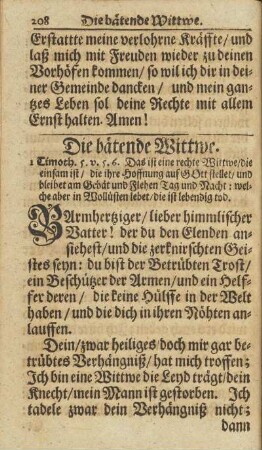 208 Die bätende Wittwe.
Erstattte meine verlohrne Kräffte/und
laß mich mit Freuden wieder zu deinen
Vorhöfen kommen/so wil ich dir in dei-
ner Gemeinde dancken/ und mein gan-
tzes Leben sol deine Rechte mit allem
Ernst halten. Amen!
Die bätende Wittwe.
1 Timoth. 5. v. 5. 6. Das ist eine rechte Wittwe/die
einsam ist/ die ihre Hoffnung auf GOtt stellet/und
bleibet am Gebät und Flehen Tag und Nacht: wel-
che aber in Wollüsten lebet/die ist lebendig tod.
BArmhertziger/lieber himmlischer
Vatter! der du den Elenden an-
siehest/und die zerknirschten Gei-
stes seyn: du bist der Betrübten Trost/
ein Beschützer der Armen/und ein Helf-
fer deren/ die keine Hülffe in der Welt
haben/und die dich in ihren Nöhten an-
lauffen.
Dein/zwar heiliges/doch mir gar be-
trübtes Verhängniß/hat mich troffen;
Ich bin eine Wittwe die Leyd trägt/dein
Knecht/mein Mann ist gestorben. Ich
tadele zwar dein Verhängniß nicht;
dann